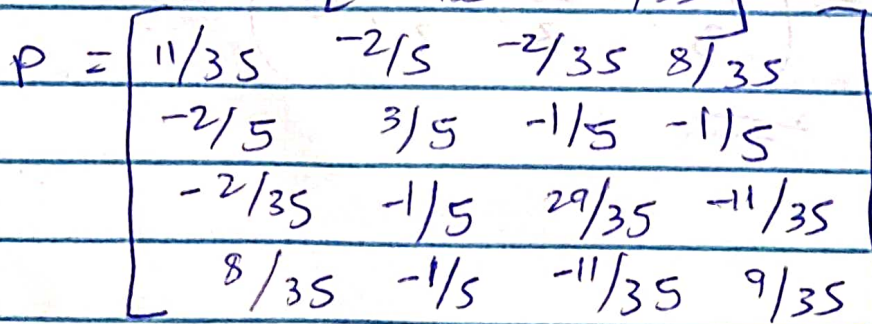 P = [ 11/35 -2/5 -2/35 8/35
-2/5 3/5 -1/5 -1/5
-2/35 -1/5 29/35 -11/35
8/35 -1/5 -11/35 9/35 ]